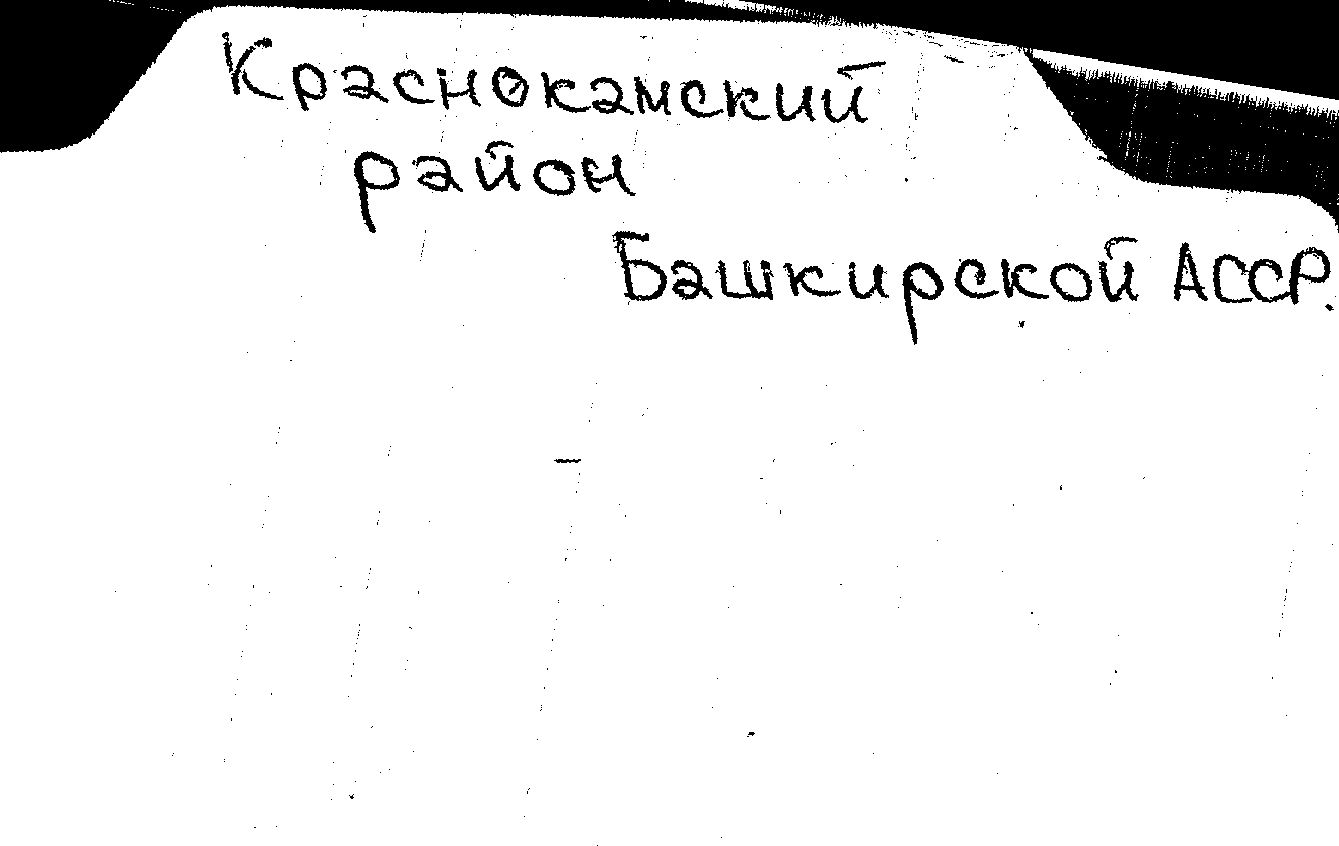 Краснокамский
район
Башкирской АССР.